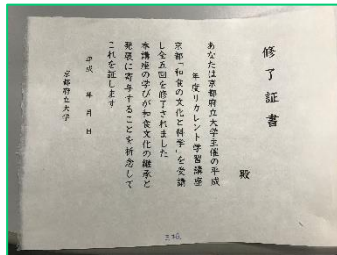 修了証書
殿
あなたは京都府立大学主催の平成
年度リカレント学習講座
京都「和食の文化と科学」を受講
し全五回を修了されました
本講座の学びが和食文化の継承と
発展に寄与することを祈念して
これを証します
平成 年 月 日
京都府立大学